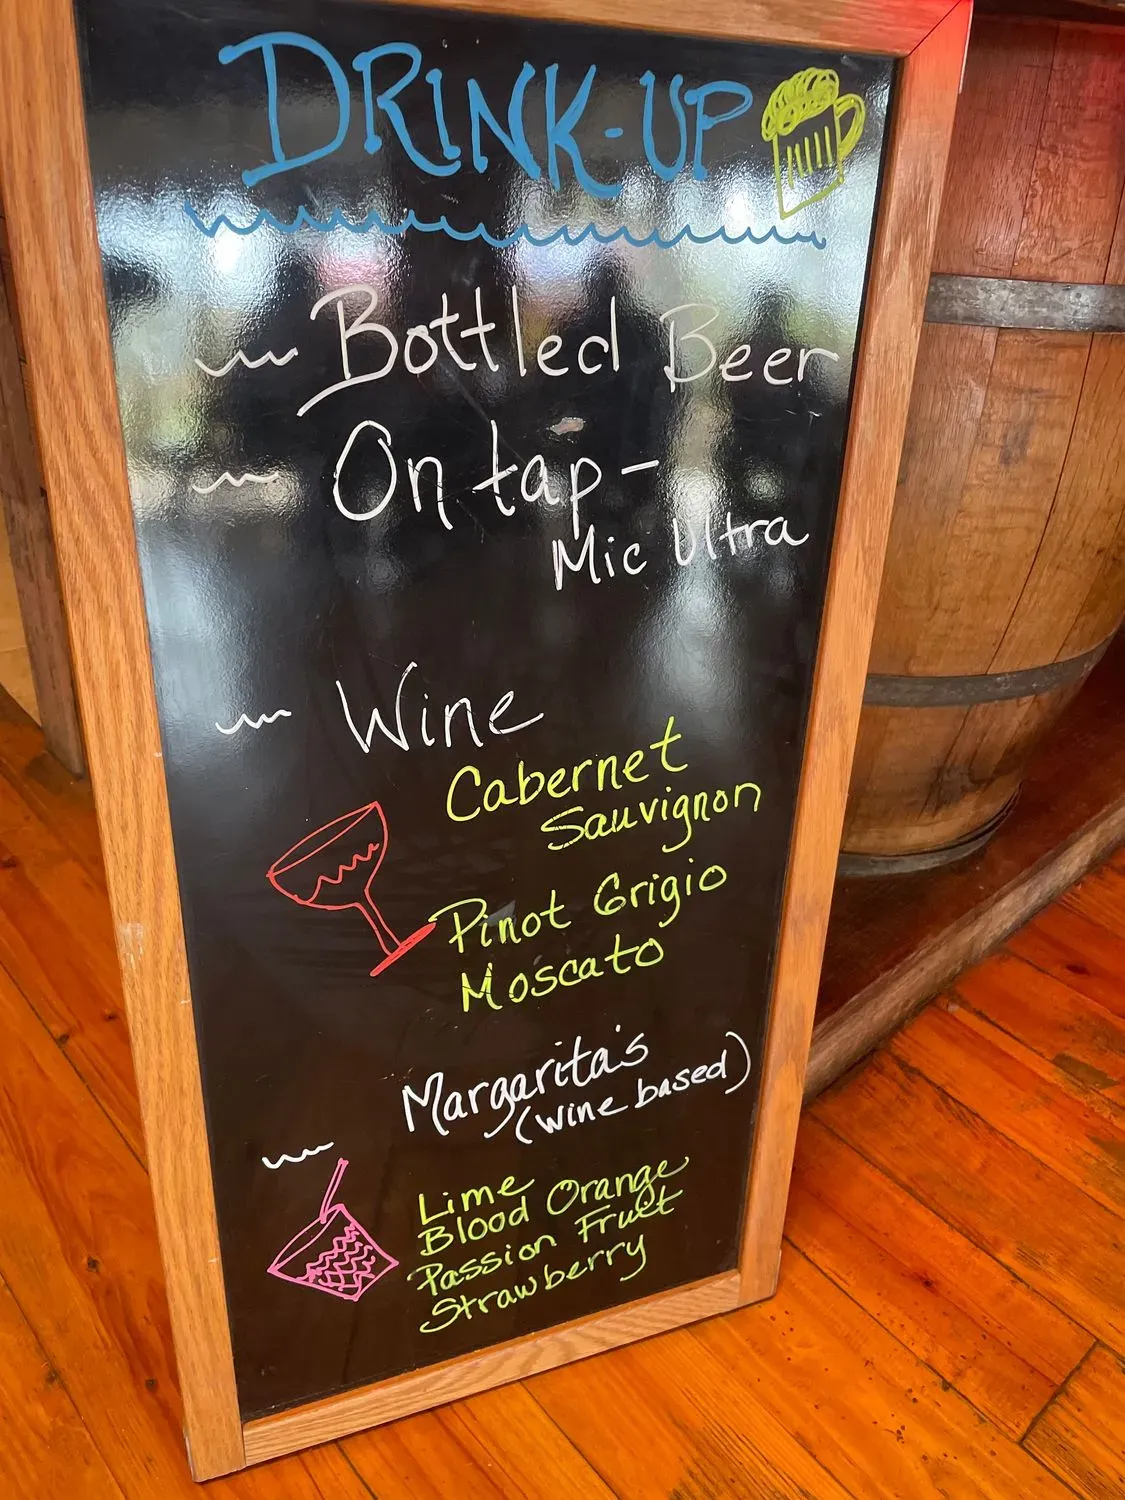 DRINK-UP
Bottled Beer
On tap-
Mic Ultra
Wine
Cabernet
Sauvignon
Pinot Grigio
Moscato
Margarita's
(wine based)
Lime
Blood Orange
Passion Fruit
Strawberry